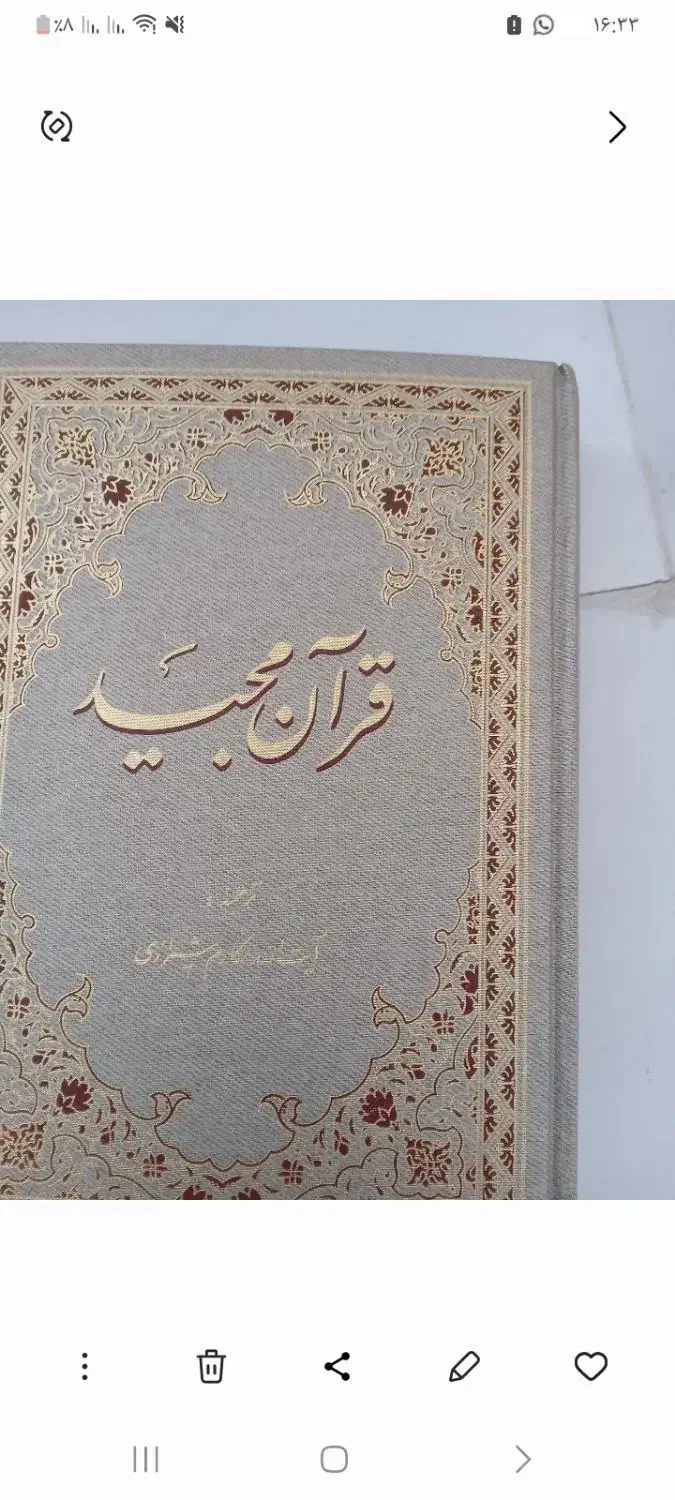 ۱۶:۳۳
٪۸
قرآن مجید
ترجمه:
آیت‌الله مکارم شیرازی